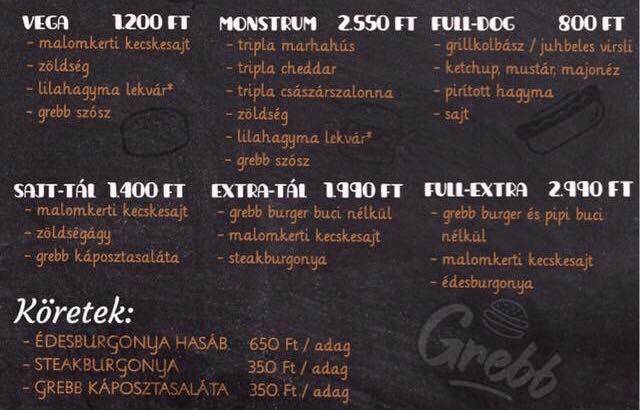 VEGA 1.200 FT
- malomkerti kecskesajt
- zöldség
- lilahagyma lekvár*
- grebb szósz
MONSTRUM 2.550 FT
- tripla marhahús
- tripla cheddar
- tripla császárszalonna
- zöldség
- lilahagyma lekvár*
- grebb szósz
FULL-DOG 800 FT
- grillkolbász / juhbeles virsli
- ketchup, mustár, majonéz
- pirított hagyma
- sajt
SAJT-TÁL 1.400 FT
- malomkerti kecskesajt
- zöldségágy
- grebb káposztasaláta
EXTRA-TÁL 1.990 FT
- grebb burger buci nélkül
- malomkerti kecskesajt
- steakburgonya
FULL-EXTRA 2.990 FT
- grebb burger és pipi buci
nélkül
- malomkerti kecskesajt
- édesburgonya
Köretek:
- ÉDESBURGONYA HASÁB 650 Ft / adag
- STEAKBURGONYA 350 Ft / adag
- GREBB KÁPOSZTASALÁTA 350 Ft / adag
Grebb